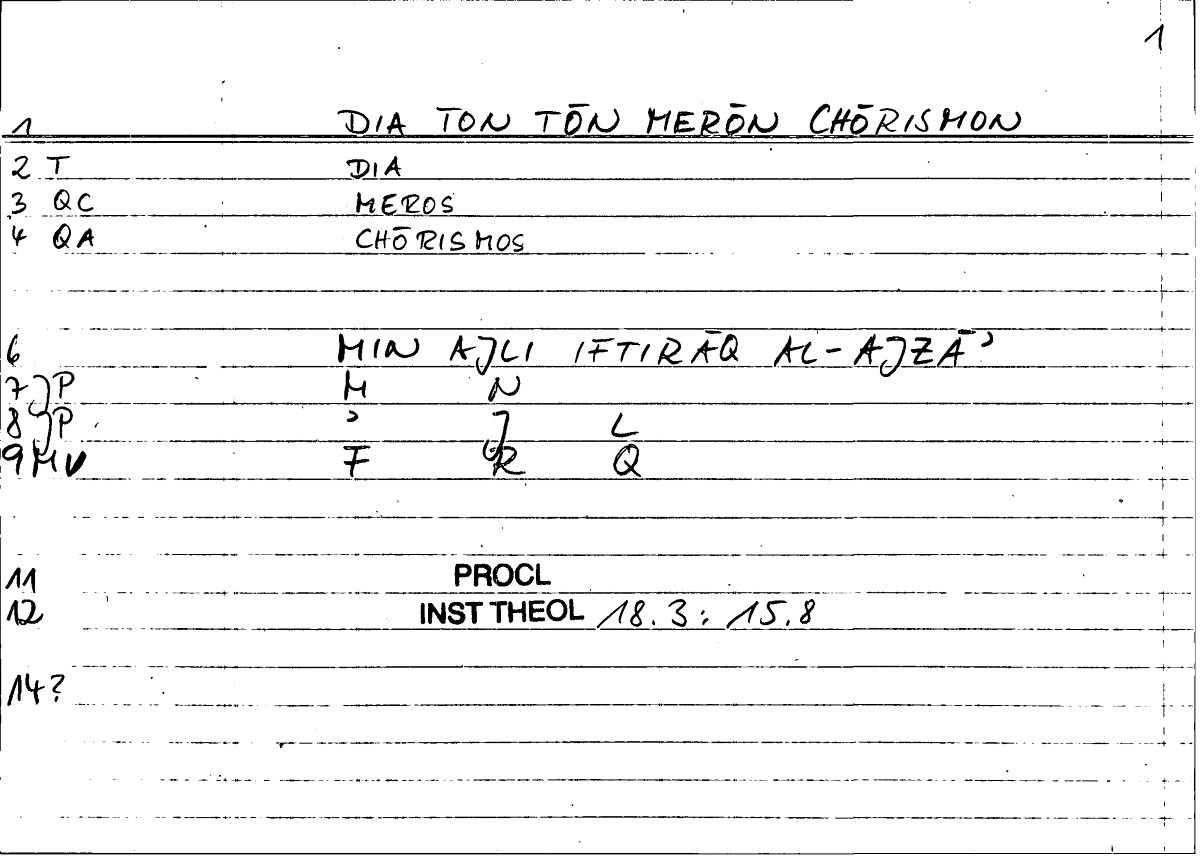 1
1 DIA TON TŌN MERŌN CHŌRISMON
2 T DIA
3 QC MEROS
4 QA CHŌRISMOS
6 MIN AJLI IFTIRĀQ AL-AJZĀʾ
7 P M N
8 P ʾ J L
9 MV F R Q
11 PROCL
12 INST THEOL 18.3: 15.8
14?